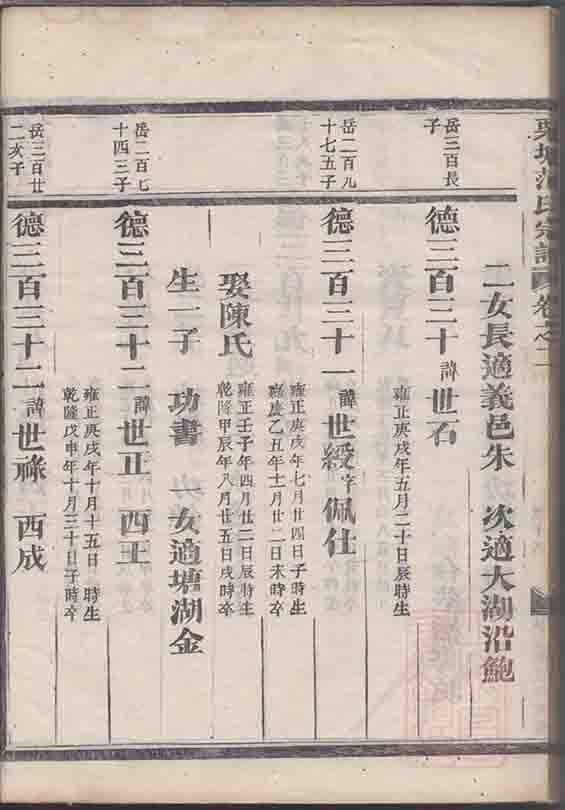 栗塘范氏宗譜 卷之二
二女長適義邑朱 次適大湖沿鮑
岳三百長
子
德三百三十 諱世石
雍正庚戌年五月二十日辰時生
岳二百九
十七五子
德三百三十一 諱世綬字佩仕
雍正庚戌年七月廿四日子時生
嘉慶乙丑年十一月廿二日未時卒
娶陳氏
雍正壬子年四月廿二日辰時生
乾隆甲辰年八月廿五日戌時卒
生一子 功書 一女適塘湖金
岳二百七
十四三子
德三百三十二 諱世正 西土
雍正庚戌年十月十五日 時生
乾隆戊申年十月三十日子時卒
岳三百廿
二次子
德三百三十二 諱世祿 西成